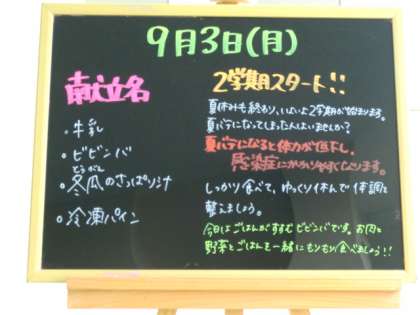 9月3日(月)
献立名
・牛乳
・ビビンバ
とうがん
・冬瓜のさっぱり汁
・冷凍パイン
2学期スタート!!
夏休みも終わり、いよいよ2学期が始まります。
夏バテになってしまった人はいませんか?
夏バテになると体力が低下し、
感染症にかかりやすくなります。
しっかり食べて、ゆっくり休んで体調を
整えましょう。
今日はごはんがすすむビビンバです。お肉と
野菜とごはんを一緒にもりもり食べましょう!!